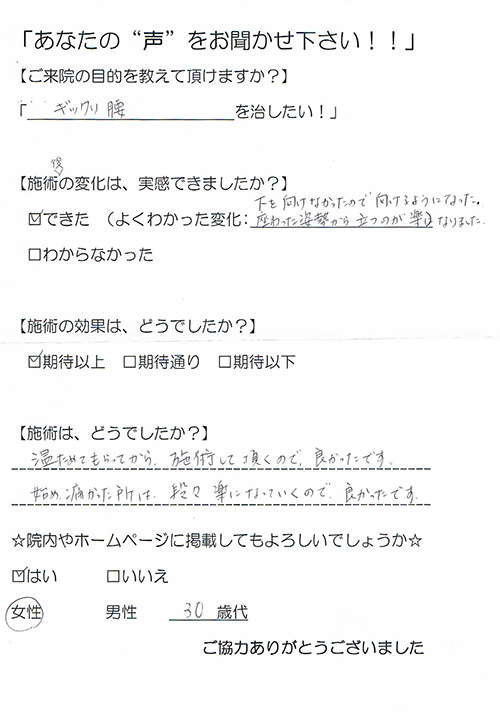 「あなたの“声”をお聞かせ下さい！！」
【ご来院の目的を教えて頂けますか？】
「 ギックリ腰 を治したい！」
後
【施術の変化は、実感できましたか？】
下を向けなかったので向けるようになった。
☑できた （よくわかった変化：座わった姿勢から立つのが楽になりました。
□わからなかった
【施術の効果は、どうでしたか？】
☑期待以上 □期待通り □期待以下
【施術は、どうでしたか？】
温ためてもらってから、施術して頂くので、良かったです。
始め痛かった所は、段々楽になっていくので、良かったです。
☆院内やホームページに掲載してもよろしいでしょうか☆
☑はい □いいえ
女性 男性 30 歳代
ご協力ありがとうございました